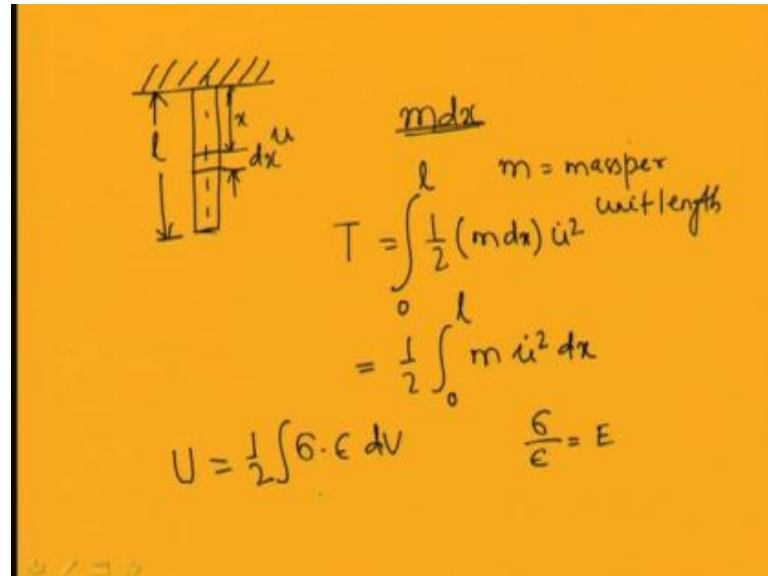 l
x
dx
u
mdx
m = mass per
unit length
T = ∫₀ˡ 1/2 (mdx) u̇²
= 1/2 ∫₀ˡ m u̇² dx
U = 1/2 ∫ σ · ε dV
σ/ε = E